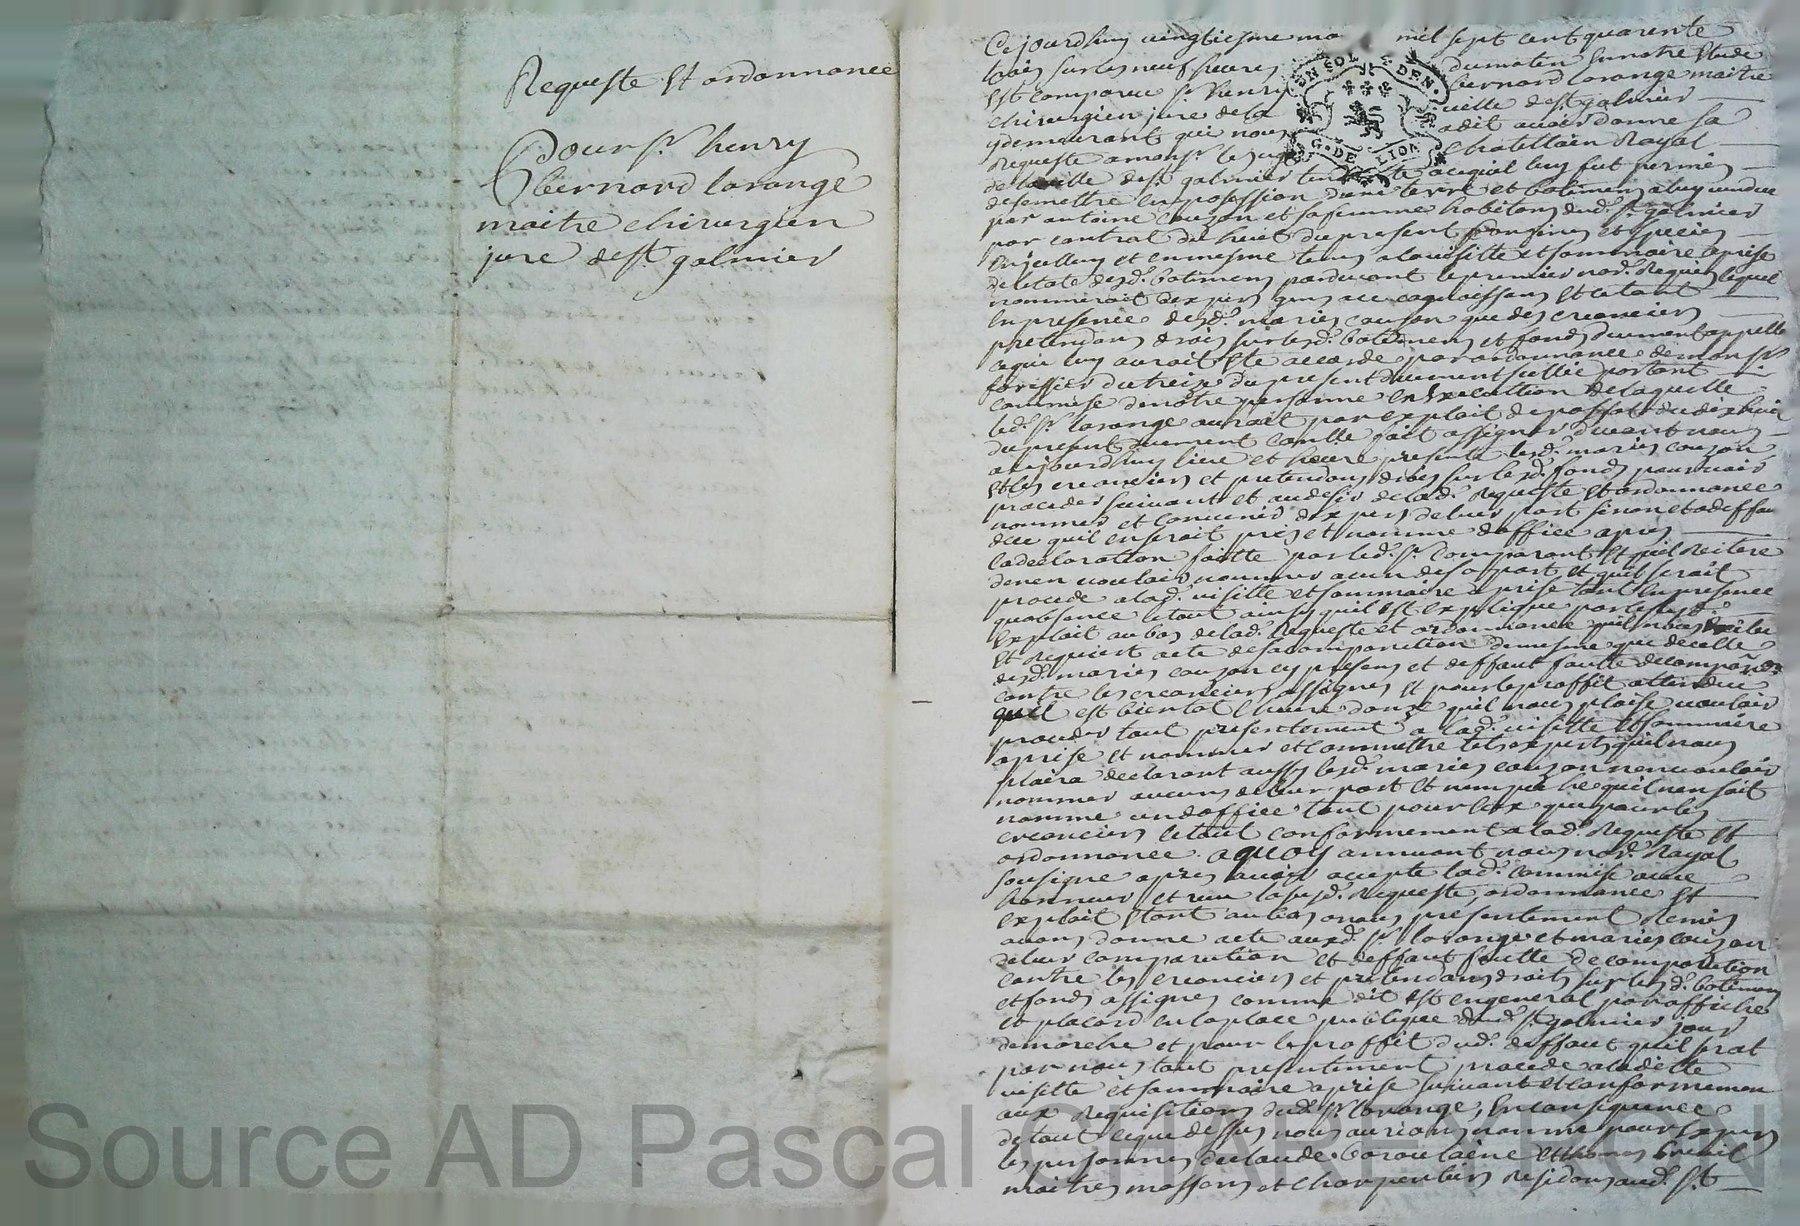 Requeste Et ordonnance
Pour sr. henry
bernard lorange
maitre chirurgien
juré de st. galmier
Ce jourdhuy vingtiesme mil sept cent quarente
trois sur les neuf heures du matin En notre Etude
Est comparu sr. henry bernard lorange maitre
chirurgien juré de la ville de st. galmier
y demeurant qui nous a dit avoir donné sa
Requeste a monsr. le juge Chatellain Royal
de la ville de st. galmier a ce quil luy fut permis
de se mettre En possession dune terre et batimens a luy vendue
par antoine couzon et sa femme habitans dud. st. galmier
par contrat du huit du present
En icelluy et en mesme tems a la visitte Et sommaire aprise
de letat desd. batimens pardevant le premier nore. Requis lequel
nommerait dexperts gens a ce connoissans Et le tout
En presence desd. mariés couzon que des creanciers
pretendans droits sur lesd. batimens et fonds duement appellé
ce qui luy aurait Eté accordé par ordonnance de monsr.
du treize du present duement sellée portant
commise de notre personne En Execution de laquelle
led. sr. lorange aurait par exploit de du dix huit
du present duement conllé fait assigner devant nous
aujourdhuy lieu et heure presente lesd. mariés couzon
Et les creanciers et pretendans droits sur lesd. fonds pour voir
proceder suivant et au desir de lad. Requeste Et ordonnance
nommer et convenir dexperts de leur part sinon et a deffau
deu quil en serait pris et nommé doffice apres
la declaration faitte par led. sr. comparant Et quil Reitere
denen vouloir nommer aucun de sa part et quil serait
procedé a lad. visitte et sommaire aprise tant En presence
quabsence le tout ainsy quil Est expliqué par le susd.
Exploit au bas de lad. Requeste et ordonnance quil nous
Et Requiert acte de sa comparution de mesme que de celle
desd. mariés couzon cy presens et deffaut faute de comparoir
contre les creanciers assignés Et pour le proffit attendu
quil est bientot lheure donze quil nous plaise vouloir
proceder tout presentement a lad. visitte Et sommaire
aprise et nommer et commettre tels experts quil nous
plaira declarant aussy lesd. mariés couzon nen vouloir
nommer aucuns de leur part Et nempeche quil nen soit
nommé un doffice tant pour Eux que pour les
creanciers le tout conformement a lad. Requeste Et
ordonnance. a quoy annuant nous nore. Royal
sousigné apres avoir accepté lad. commise avec
honneur et veu la susd. Requeste, ordonnance Et
exploit Etant au bas a nous presentement Remis
avons donné acte auxd. sr. lorange et mariés couzon
de leur comparution et deffaut faulte de comparution
contre les creanciers et pretendans droits sur lesd. batimens
et fonds assignés comme dit est en general par affiche
et placard en la place publique dud. st. galmier jour
de marché et pour le proffit dud. deffaut quil serat
par nous tout presentement procedé a la ditte
visitte et sommaire aprise suivant et conformemen
aux Requisitions dud. sr. lorange, En consequence
de tout ce que dessus nous aurions nommé pour Experts
les personnes de claude et
maitres massons et charpentiers Residans aud. St.
Source AD Pascal